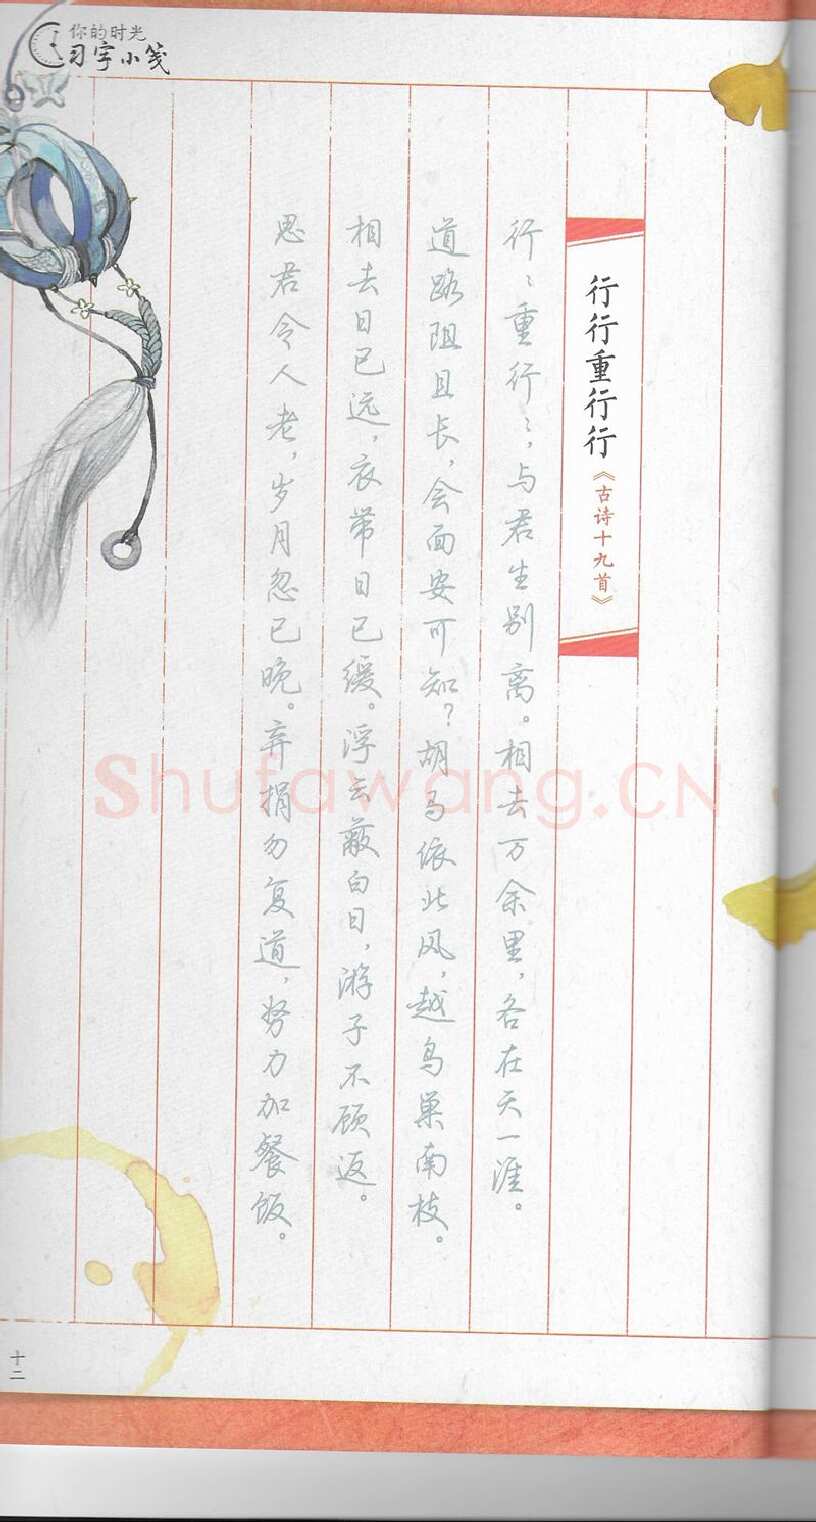 你的时光
习字小笺
行行重行行《古诗十九首》
行〻重行〻，与君生别离。相去万余里，各在天一涯。
道路阻且长，会面安可知？胡马依北风，越鸟巢南枝。
相去日已远，衣带日已缓。浮云蔽白日，游子不顾返。
思君令人老，岁月忽已晚。弃捐勿复道，努力加餐饭。
Shufawang.CN
十二